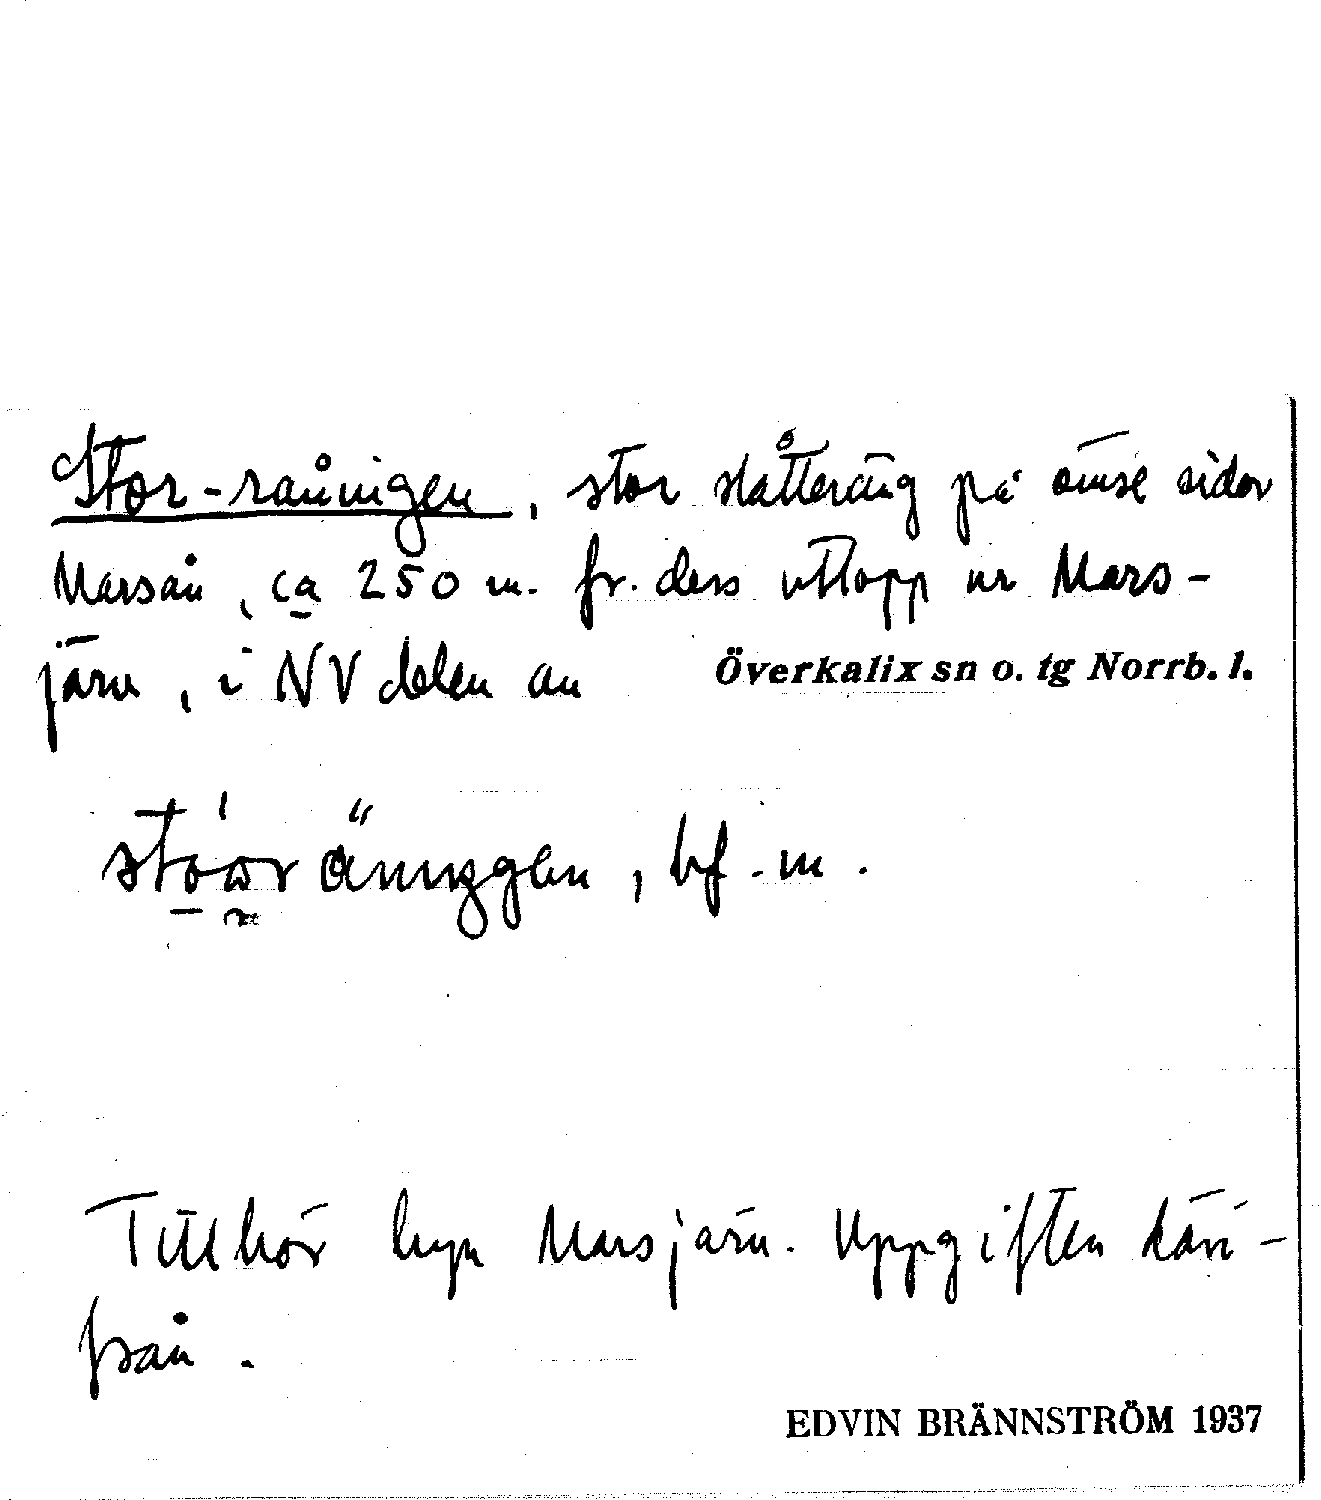 Stor-rånningen, stor slåtteräng på ömse sidor
Marsån, ca 250 m. fr. dess utlopp ur Mars-
järv, i NV delen av Överkalix sn o. tg Norrb. l.
bf. m.
Tillhör byn Marsjärv. Uppgiften däri-
från.
EDVIN BRÄNNSTRÖM 1937